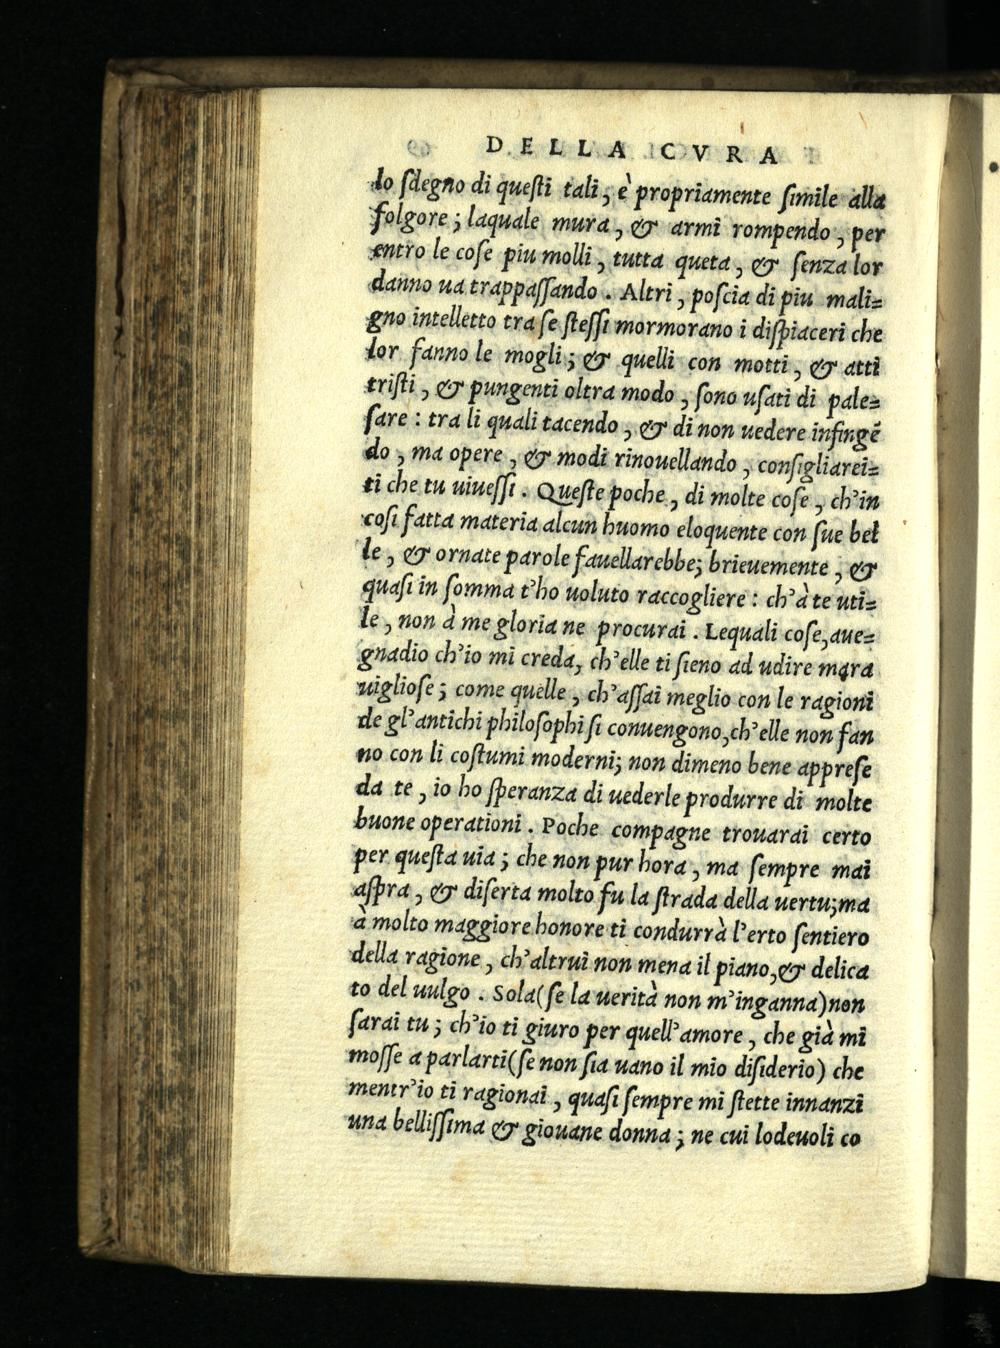 DELLA CVRA
lo ſdegno di queſti tali, è propriamente ſimile alla
folgore; laquale mura, & armi rompendo, per
entro le coſe piu molli, tutta queta, & ſenza lor
danno ua trappaſſando. Altri, poſcia di piu mali=
gno intelletto tra ſe ſteſſi mormorano i diſpiaceri che
lor fanno le mogli; & quelli con motti, & atti
triſti, & pungenti oltra modo, ſono uſati di pale=
ſare: tra li quali tacendo, & di non uedere infingē
do, ma opere, & modi rinouellando, conſigliarei=
ti che tu uiueſſi. Queſte poche, di molte coſe, ch'in
coſi fatta materia alcun huomo eloquente con ſue bel
le, & ornate parole fauellarebbe; brieuemente, &
quaſi in ſomma t'ho uoluto raccogliere: ch'à te uti=
le, non à me gloria ne procurai. Lequali coſe, aue=
gnadio ch'io mi creda, ch'elle ti ſieno ad udire mara
uiglioſe; come quelle, ch'aſſai meglio con le ragioni
de gl'antichi philoſophi ſi conuengono, ch'elle non fan
no con li coſtumi moderni; non dimeno bene appreſe
da te, io ho ſperanza di uederle produrre di molte
buone operationi. Poche compagne trouarai certo
per queſta uia; che non pur hora, ma ſempre mai
aſpra, & diſerta molto fu la ſtrada della uertu; ma
à molto maggiore honore ti condurrà l'erto ſentiero
della ragione, ch'altrui non mena il piano, & delica
to del uulgo. Sola (ſe la uerità non m'inganna) non
ſarai tu; ch'io ti giuro per quell'amore, che già mi
moſſe a parlarti (ſe non ſia uano il mio diſiderio) che
mentr'io ti ragionai, quaſi ſempre mi ſtette innanzi
una belliſſima & giouane donna; ne cui lodeuoli co